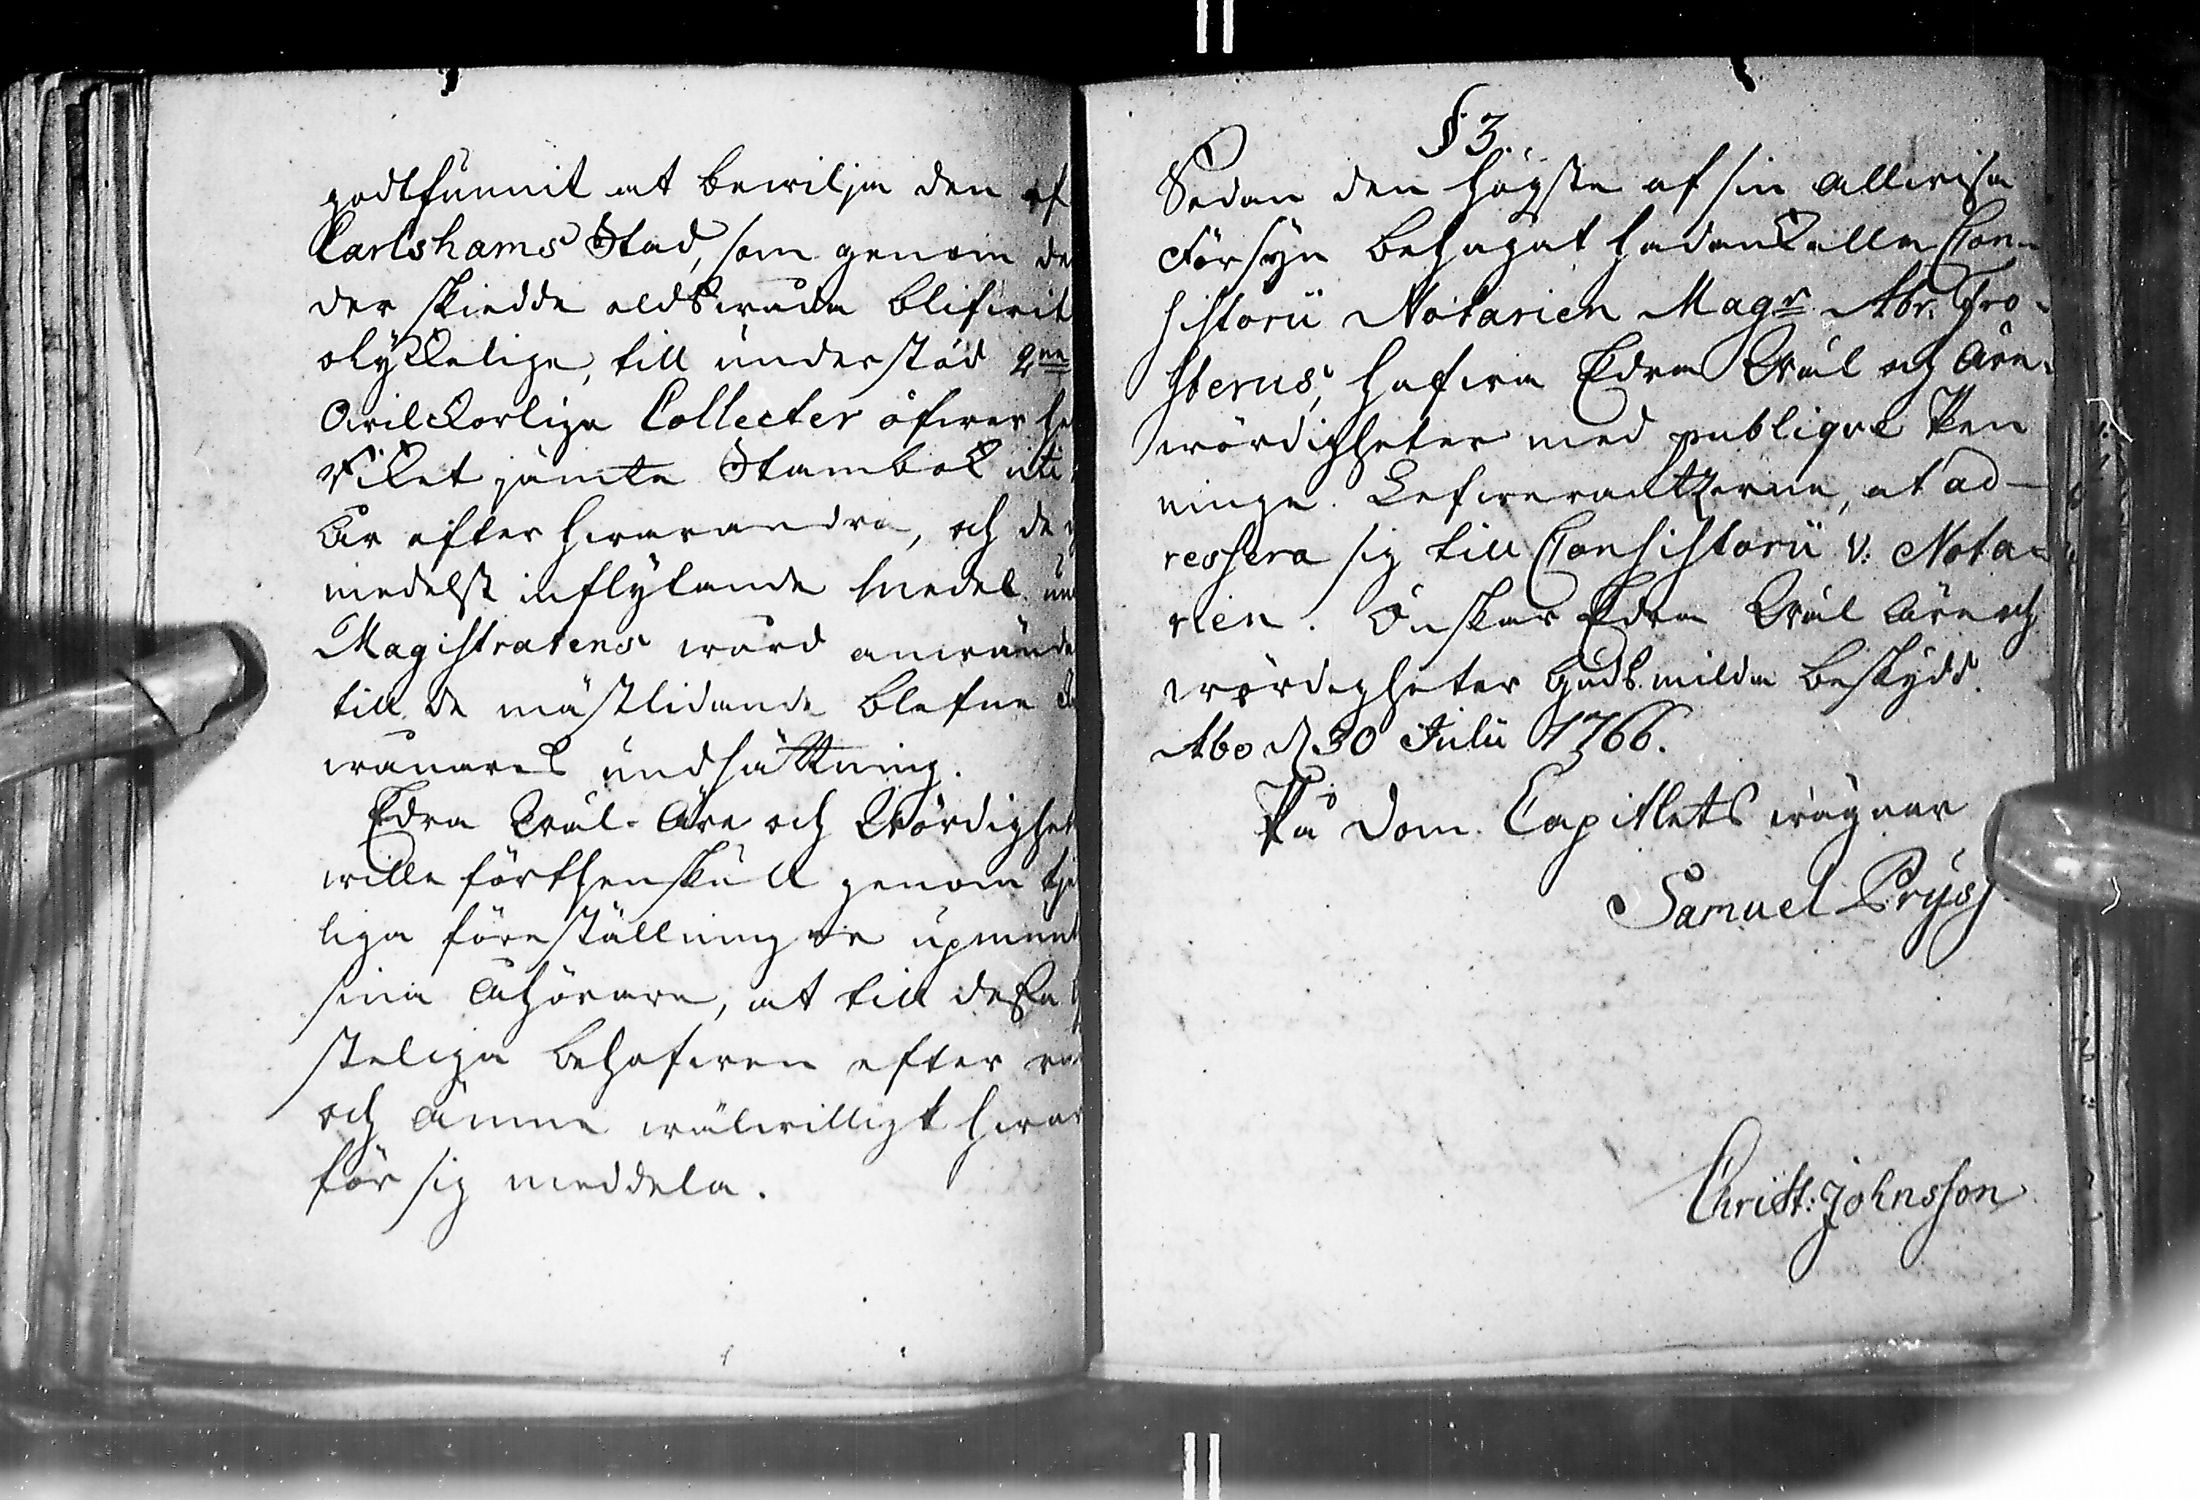 godtfunnit at bewilja den af
Carlshams Stad, som genom de
der skiedde eldswåda blifwit
olykkelige, till understöd 2ne
Owilckorliga Collecter öfwer he
Riket jämte Stambok uti
År efter hwarandra, och de
medelst inflytande medel un
Magistratens wård anwände
till de mäst lidande blefne
wånares undsättning.
Edra Wäl-Äre och Wördighet
wille förthenskull genom tje
liga föreställningar upmunt
sina Åhörare, at till dessa
steliga behofwen efter rå
och ämne wälwilligt hwar
för sig meddela.
§ 3.
Sedan den högste af sin allwisa
Försyn behagat hädankalla Con-
sistorii Notarien Magr Abr: Fro-
sterus, hafwa Edra Wäl och Äre-
wördigheter med publique Pen
ninge Lefwerantzerne, at ad-
ressera sig till Consistorii v: Nota-
rien. Önskar Edra Wäl Äre och
wördigheter Guds milda beskydd.
Åbo d 30 Julii 1766.
På Dom Capitlets wägnar
Samuel Pryss
Christ: Johnsson